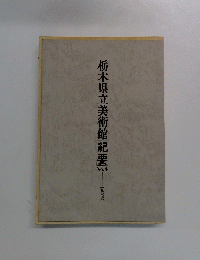 栃木県立美術館紀要